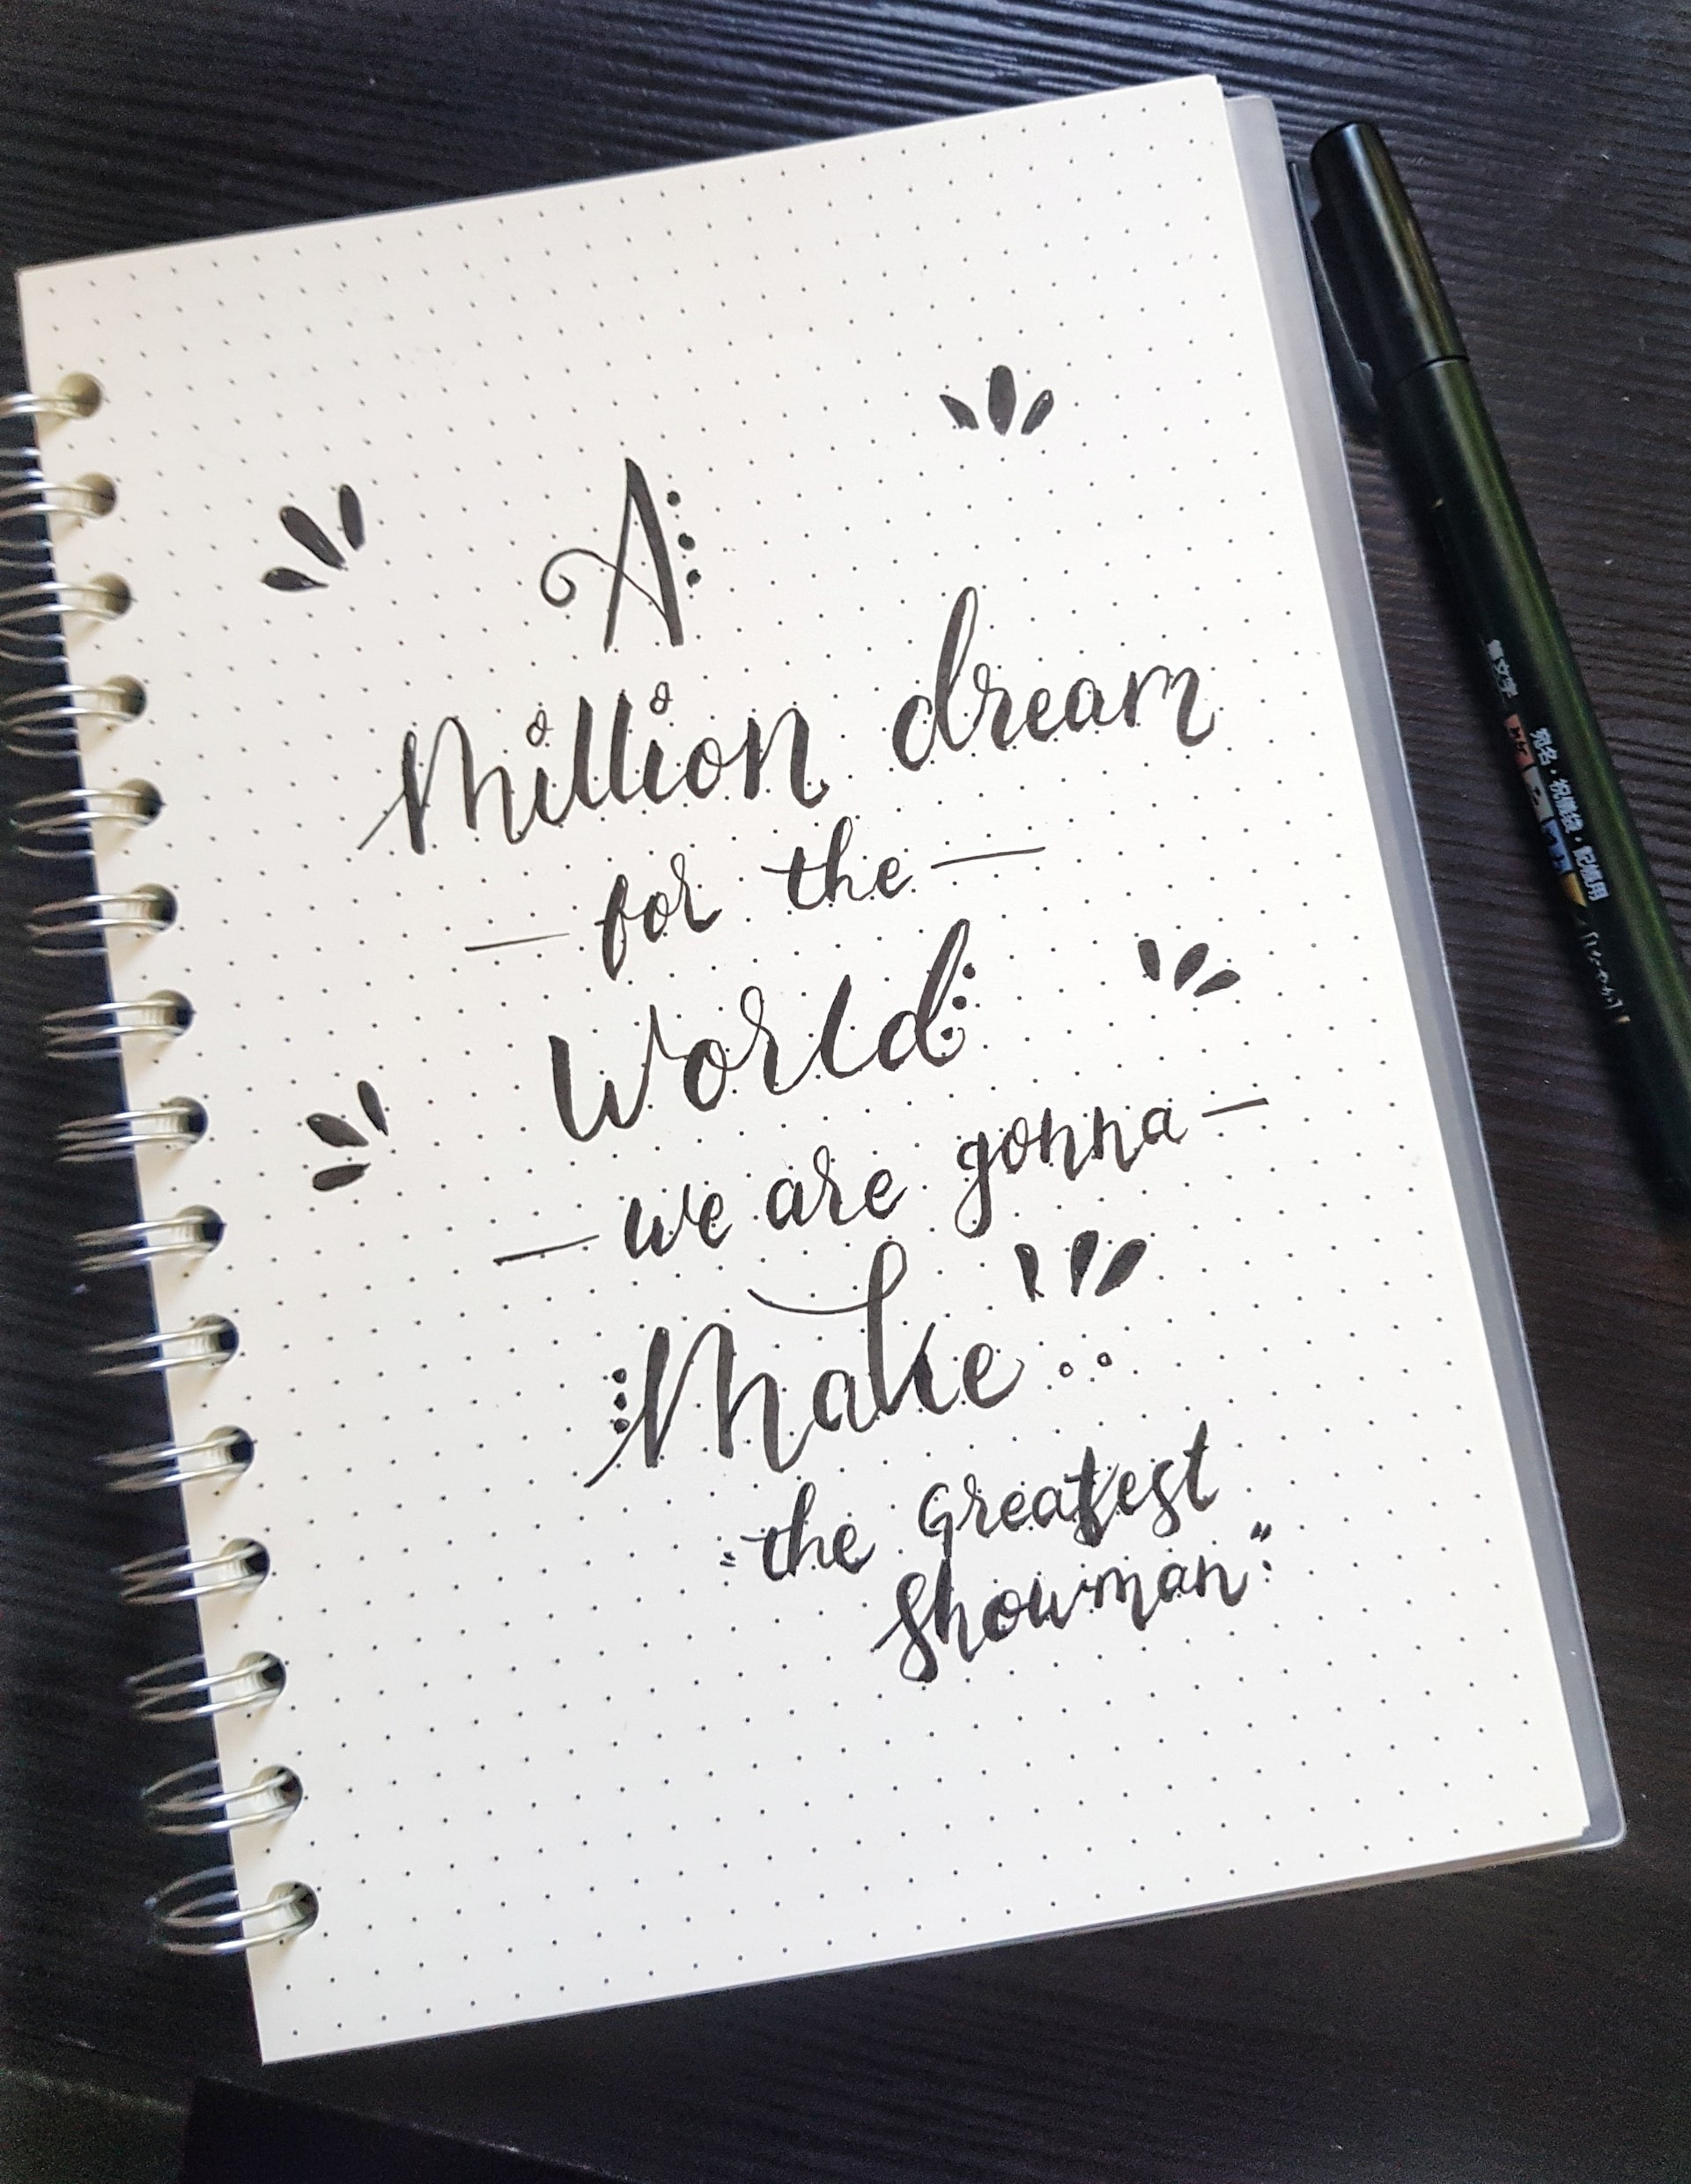 A
Million dream
— for the —
World
— we are gonna —
Make . . .
"the Greatest
Showman"
宛名・祝儀袋・記帳用